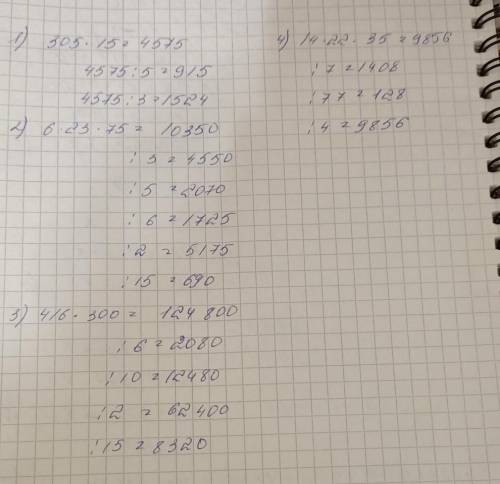 1) 305 · 15 = 4575
4575 : 5 = 915
4575 : 3 = 1524
2) 6 · 23 · 75 = 10350
: 3 = 4550
: 5 = 2070
: 6 = 1725
: 2 = 5175
: 15 = 690
3) 416 · 300 = 124 800
: 6 = 2080
: 10 = 12480
: 2 = 62400
: 15 = 8320
4) 14 · 22 · 35 = 9856
: 7 = 1408
: 77 = 128
: 4 = 9856